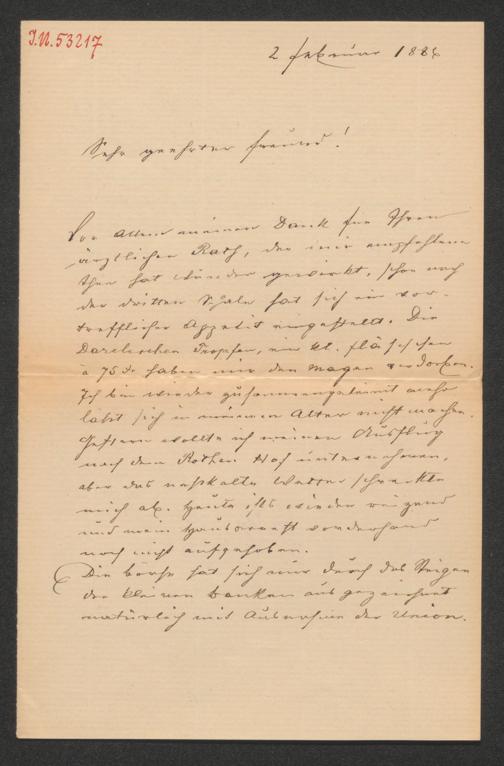 I.N. 53217
2 Februar 1886
Sehr geehrter Freund!
Vor Allem meinen Dank für Ihren
ärztlichen Rath, der mir empfohlene
Thee hat Wunder gewirkt, schon nach
der dritten Schale hat sich ein vor-
trefflicher Appetit eingestellt. Die
Tropfen, ein kl. Fläschchen
à 75 haben mir den Magen verdorben.
Ich bin wieder zusammengeleimt mehr
läßt sich in meinem Alter nicht machen.
Gestern wollte ich meinen Ausflug
nach dem Rothen Hof unternehmen,
aber das naßkalte Wetter schreckte
mich ab. Heute ists wieder
und mein Hausarrest vorderhand
noch nicht aufgehoben.
Die Börse hat sich nur durch das Steigen
der kleinen Banken ausgezeichnet
natürlich mit Ausnahme der Union.